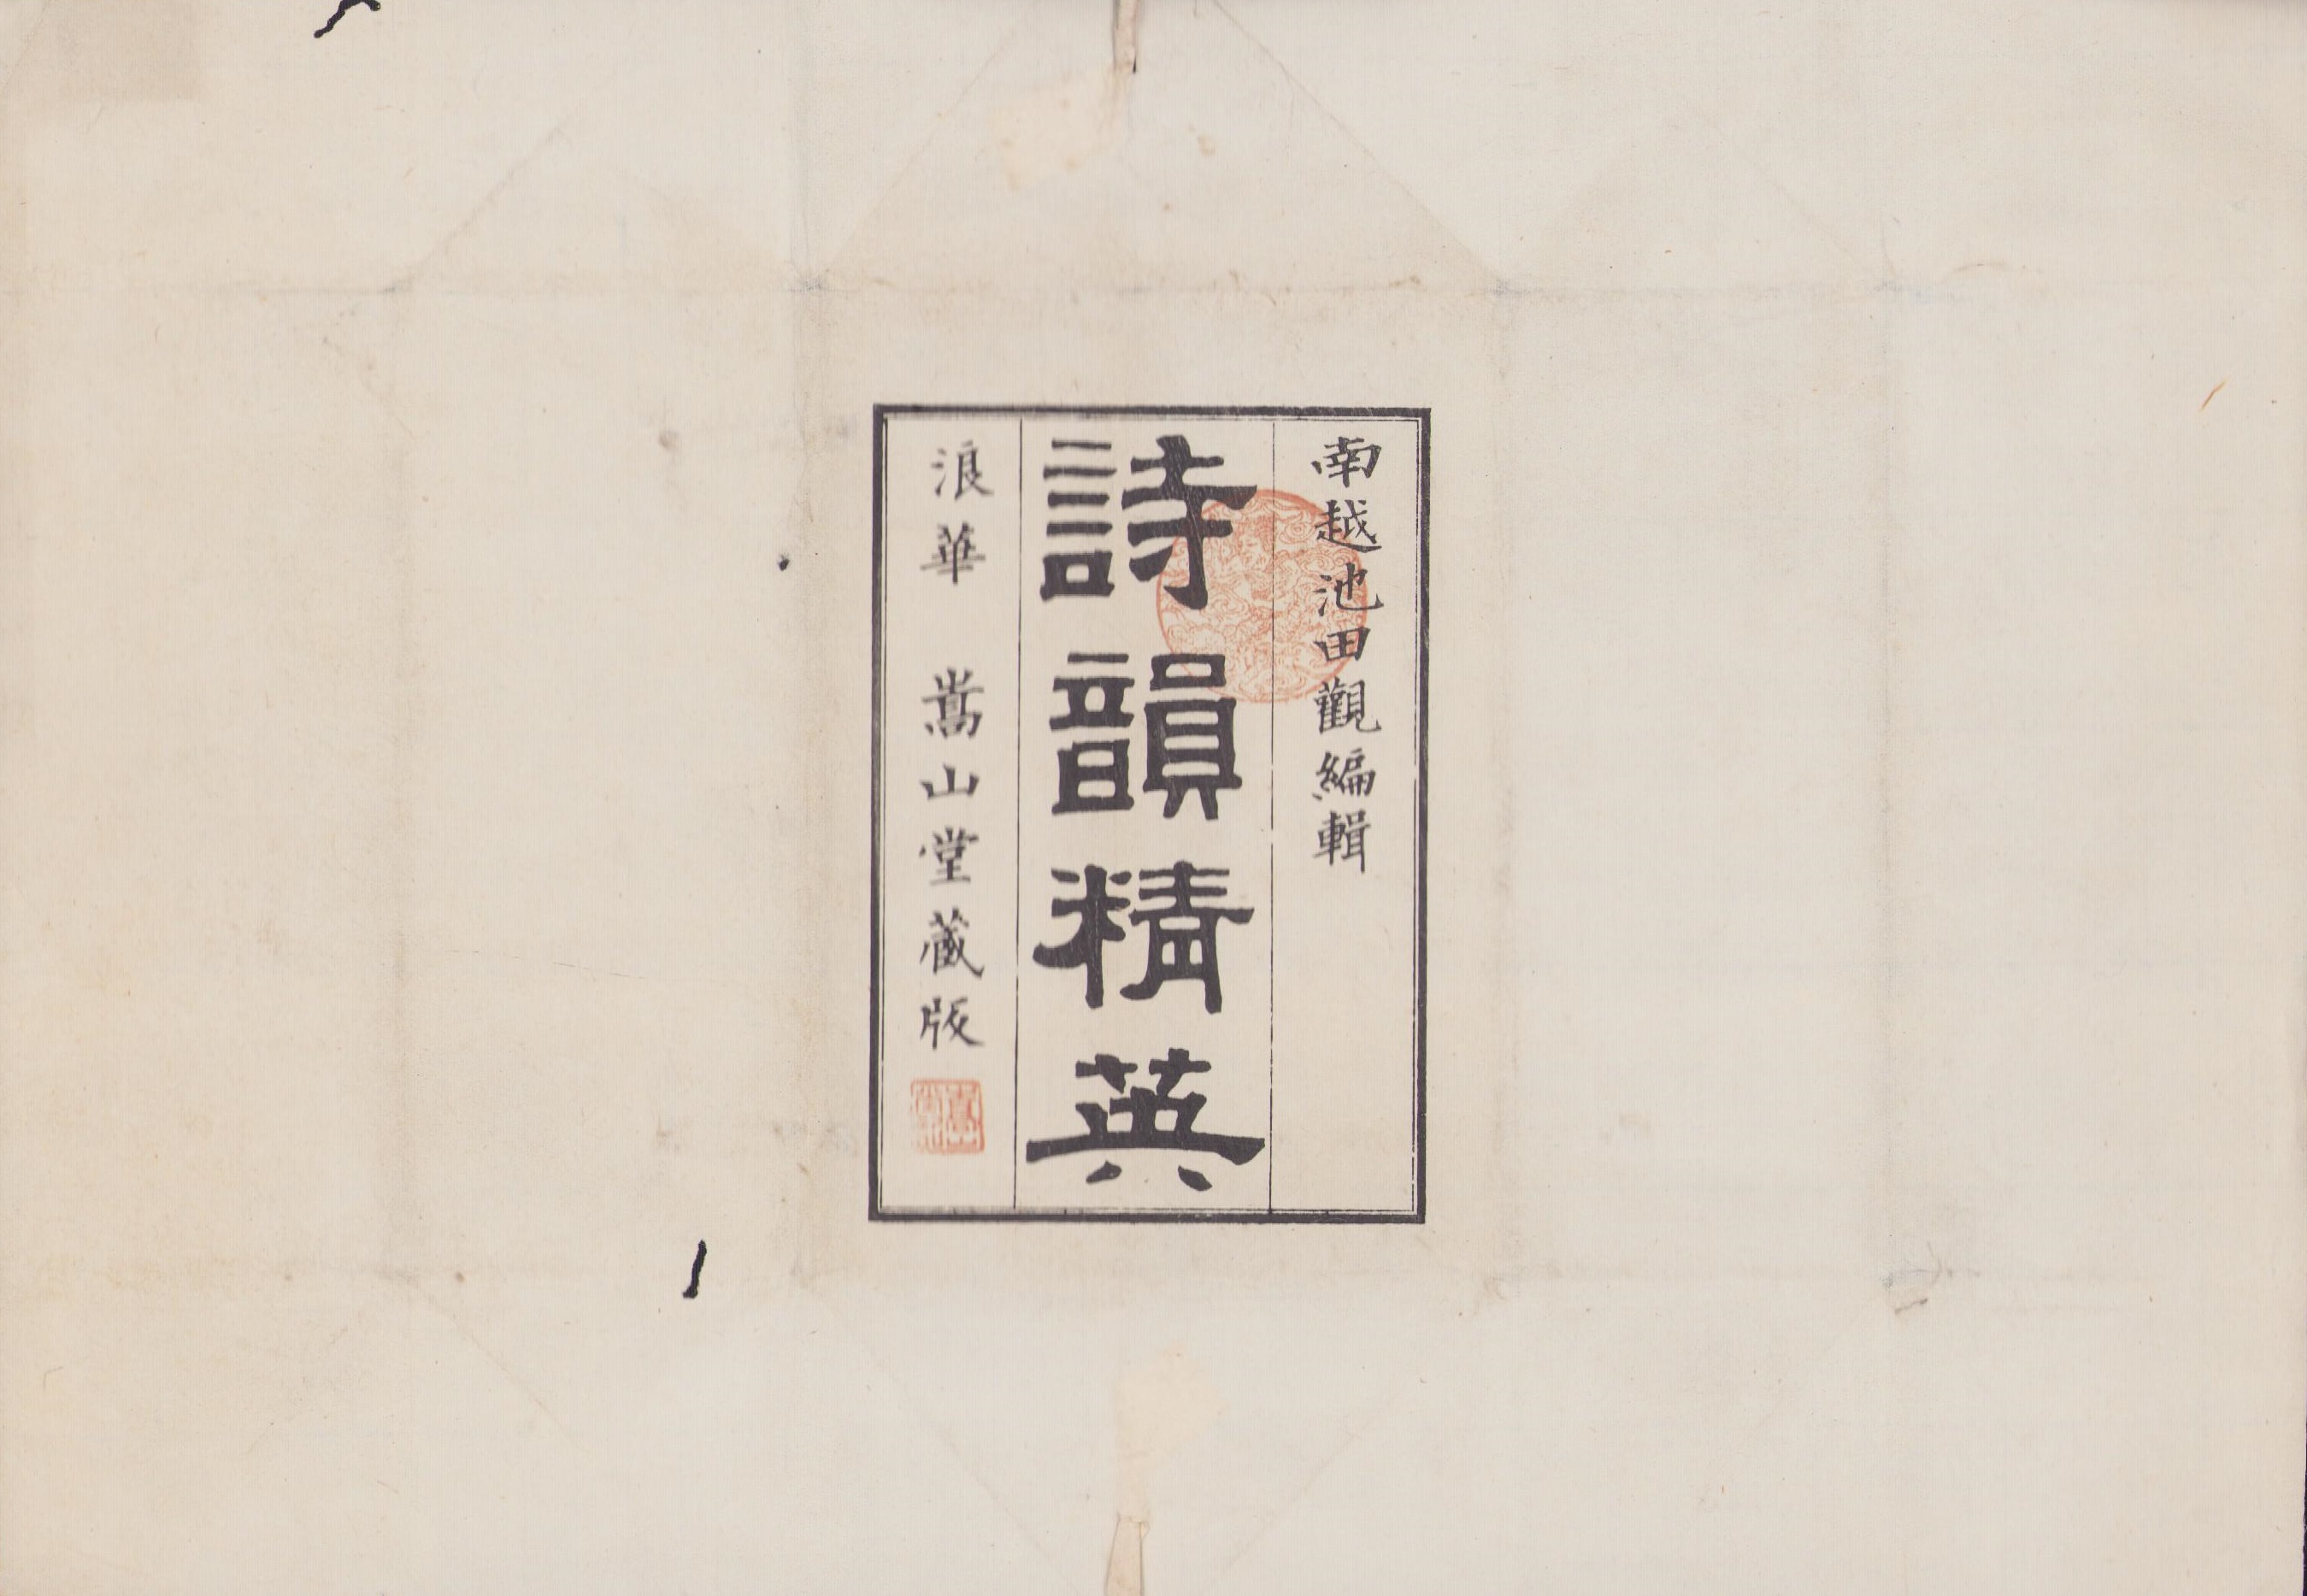 南越池田觀編輯
詩韻精英
浪華 嵩山堂藏版